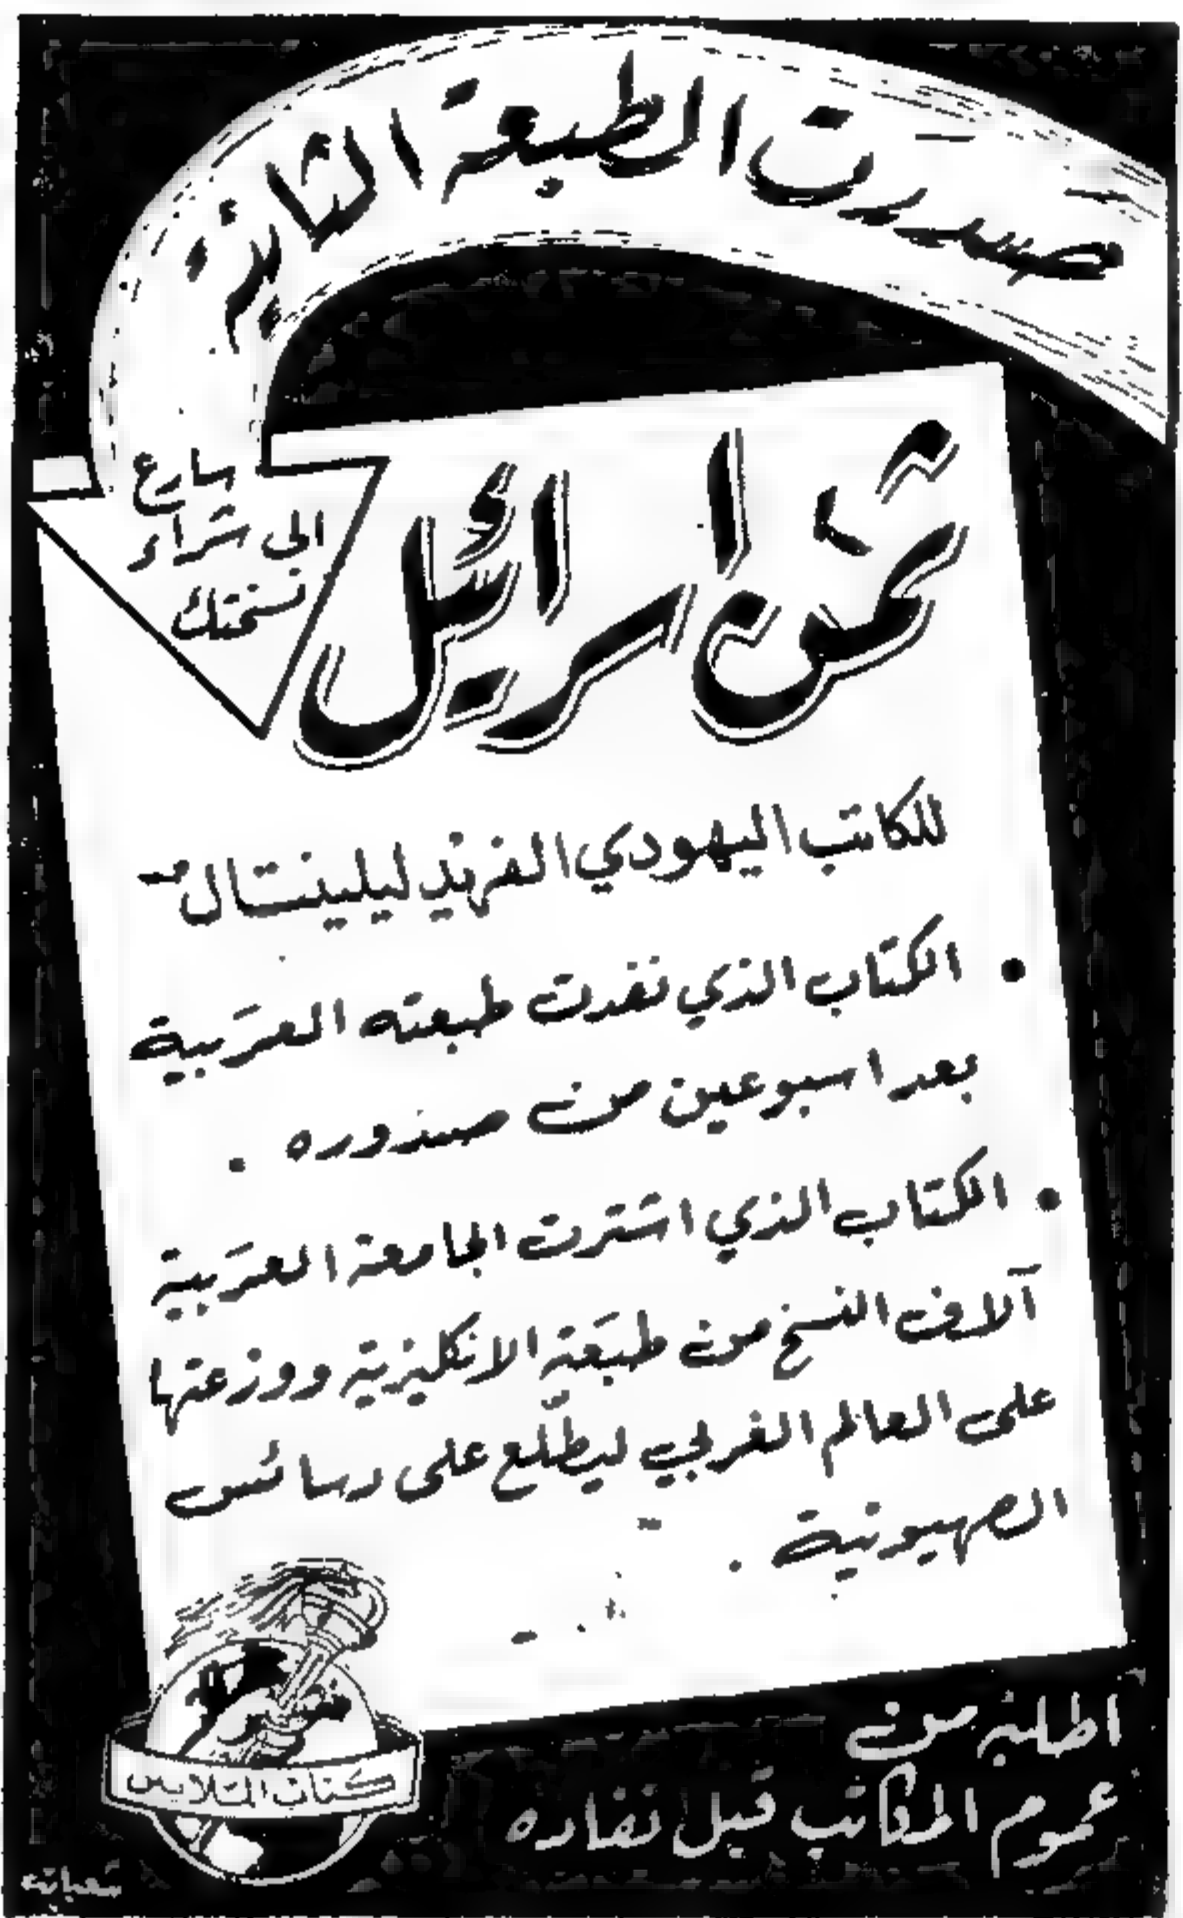 صدرت الطبعة الثانية
سارع
الى شراء
نسختك
ثمن اسرائيل
للكاتب اليهودي الفريد ليلينتال
• الكتاب الذي نفدت طبعته العربية
بعد اسبوعين من صدوره .
• الكتاب الذي اشترت الجامعة العربية
آلاف النسخ من طبعته الانكليزية ووزعتها
على العالم الغربي ليطلع على دسائس
الصهيونية .
اطلبه من
عموم المكاتب قبل نفاده
كتاب الملايين